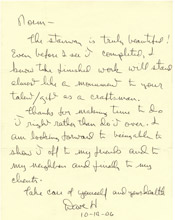 Norm —
The stairway is truly beautiful!
Even before I see it completed, I
know the finished work will stand
almost like a monument to your
talent/gift as a craftsman.
Thanks for making time to do
it right rather than do it over. I
am looking forward to being able to
show it off to my friends and to
my neighbors and finally to my
clients.
Take care of yourself and your health
Dave H
10-18-06